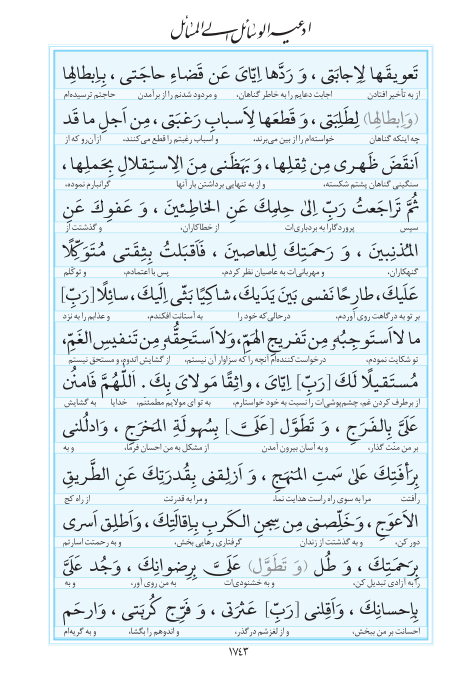 ادعیه الوسائل الی المسائل
تَعويقَها لِاِجابَتى ، وَ رَدَّها اِيّاىَ عَن قَضاءِ حاجَتى ، بِاِبطالِها
از به تأخیر افتادن اجابت دعایم را به خاطر گناهان، و مردود شدنم را از برآمدن حاجتم ترسیده‌ام
(وَ اِبطالِها) لِطَلِبَتى ، وَ قَطعَها لِاَسبابِ رَغبَتى ، مِن اَجلِ ما قَد
چه اینکه گناهان خواسته‌ام را از بین می‌برند، و اسباب رغبتم را قطع می‌کنند، ازآن‌رو که از
اَنقَضَ ظَهرى مِن ثِقلِها ، وَ بَهَظَنى مِنَ الاِستِقلالِ بِحَملِها ،
سنگینی گناهان پشتم شکسته، و از به تنهایی برداشتن بار آنها گرانبارم نموده،
ثُمَّ تَراجَعتُ رَبِّ اِلىٰ حِلمِكَ عَنِ الخاطِئينَ ، وَ عَفوِكَ عَنِ
سپس پروردگارا به بردباری‌ات از خطاکاران، و گذشتت از
المُذنِبينَ ، وَ رَحمَتِكَ لِلعاصينَ ، فَاَقبَلتُ بِثِقَتى مُتَوَكِّلًا
گنهکاران، و مهربانی‌ات به عاصیان نظر کردم، پس با اعتمادم، و توکّلم
عَلَيكَ، طارِحًا نَفسى بَينَ يَدَيكَ، شاكِيًا بَثّى اِلَيكَ، سائِلًا [رَبِّ]
بر تو به درگاهت روی آوردم، درحالی‌که خود را به آستانت افکندم، و عذابم را به نزد
ما لا اَستَوجِبُهُ مِن تَفريجِ الهَمِّ، وَلا اَستَحِقُّهُ مِن تَنفيسِ الغَمِّ،
تو شکایت نمودم، درخواست‌کننده‌ام آنچه را که سزاوار آن نیستم، از گشایش اندوه، و مستحق نیستم
مُستَقيلًا لَكَ [رَبِّ] اِيّاىَ ، واثِقًا مَولاىَ بِكَ . اَللّٰهُمَّ فَامنُن
از برطرف کردن غم، چشم‌پوشی‌ات را نسبت به خود خواستارم، به تو ای مولایم مطمئنم، خدایا به گشایش
عَلَىَّ بِالفَرَجِ ، وَ تَطَوَّل [عَلَىَّ] بِسُهولَةِ المَخرَجِ ، وَادلُلنى
بر من منت گذار، و به آسان بیرون آمدن از مشکل به من احسان فرما، و به
بِرَأفَتِكَ عَلىٰ سَمتِ المَنهَجِ ، وَ اَزلِقنى بِقُدرَتِكَ عَنِ الطَّريقِ
رأفتت مرا به سوی راه راست هدایت نما، و مرا به قدرتت از راه کج
الاَعوَجِ ، وَ خَلِّصنى مِن سِجنِ الكَربِ بِاِقالَتِكَ ، وَ اَطلِق اَسرى
دور کن، و به گذشتت از زندان گرفتاری رهایی بخش، و به رحمتت اسارتم
بِرَحمَتِكَ ، وَ طُل (وَ تَطَوَّل) عَلَىَّ بِرِضوانِكَ ، وَ جُد عَلَىَّ
را به آزادی تبدیل کن، و به خشنودی‌ات به من روی آور، و به
بِاِحسانِكَ ، وَ اَقِلنى [رَبِّ] عَثرَتى ، وَ فَرِّج كُربَتى ، وَ ارحَم
احسانت بر من ببخش، و از لغزشم درگذر، و اندوهم را بگشا، و به گریه‌ام
۱۷۴۳